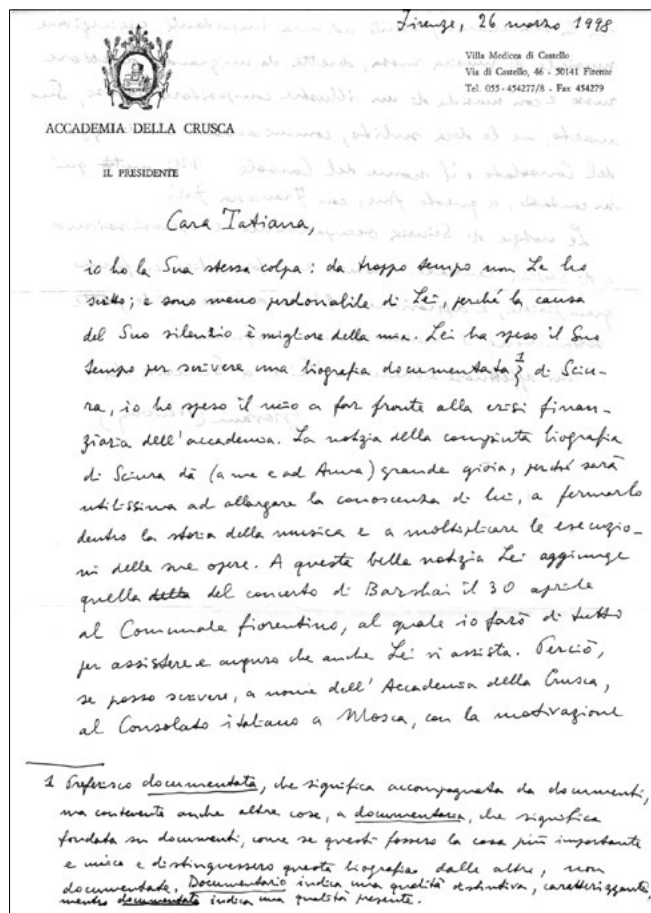 Firenze, 26 marzo 1998
Villa Medicea di Castello
Via di Castello, 46 - 50141 Firenze
Tel. 055 - 454277/8 - Fax 454279
ACCADEMIA DELLA CRUSCA
IL PRESIDENTE
Cara Tatiana,
io ho la Sua stessa colpa: da troppo tempo non Le ho
scritto; e sono meno perdonabile di Lei, perché la causa
del Suo silenzio è migliore della mia. Lei ha speso il Suo
tempo per scrivere una biografia documentata 1 di Sciu-
ra, io ho speso il mio a far fronte alla crisi finan-
ziaria dell'accademia. La notizia della compiuta biografia
di Sciura dà (a me e ad Anna) grande gioia, perché sarà
utilissima ad allargare la conoscenza di lui, a fermarlo
dentro la storia della musica e a moltiplicare le esecuzio-
ni delle sue opere. A questa bella notizia Lei aggiunge
quella della del concerto di Barshai il 30 aprile
al Comunale fiorentino, al quale io farò di tutto
per assistere e auguro che anche Lei vi assista. Perciò,
se posso scrivere, a nome dell'Accademia della Crusca,
al Consolato italiano a Mosca, con la motivazione
1 Preferisco documentata, che significa accompagnata da documenti,
ma contenente anche altre cose, a documentaria, che significa
fondata su documenti, come se questi fossero la cosa più importante
e unica e distinguessero questa biografia dalle altre, non
documentate. Documentario indica una qualità distintiva, caratterizzante,
mentre documentata indica una qualità presente.